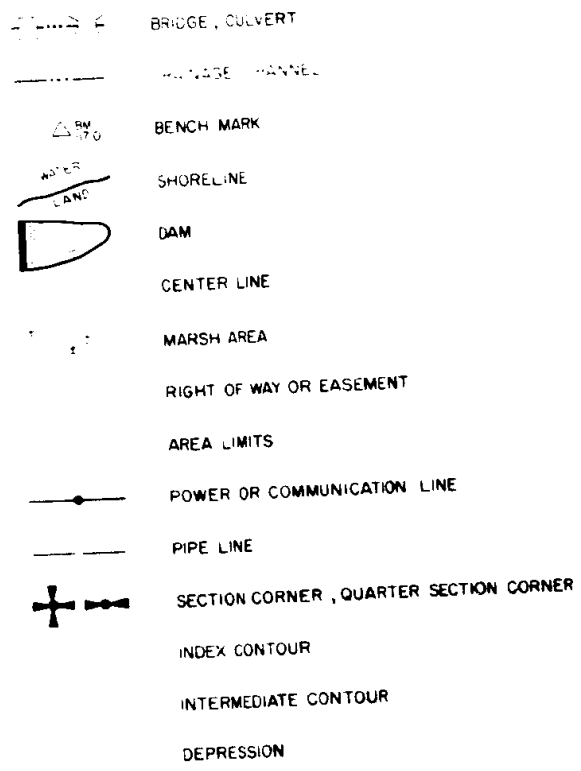 BRIDGE , CULVERT
BM
BENCH MARK
WATER
LAND
SHORELINE
DAM
CENTER LINE
MARSH AREA
RIGHT OF WAY OR EASEMENT
AREA LIMITS
POWER OR COMMUNICATION LINE
PIPE LINE
SECTION CORNER , QUARTER SECTION CORNER
INDEX CONTOUR
INTERMEDIATE CONTOUR
DEPRESSION